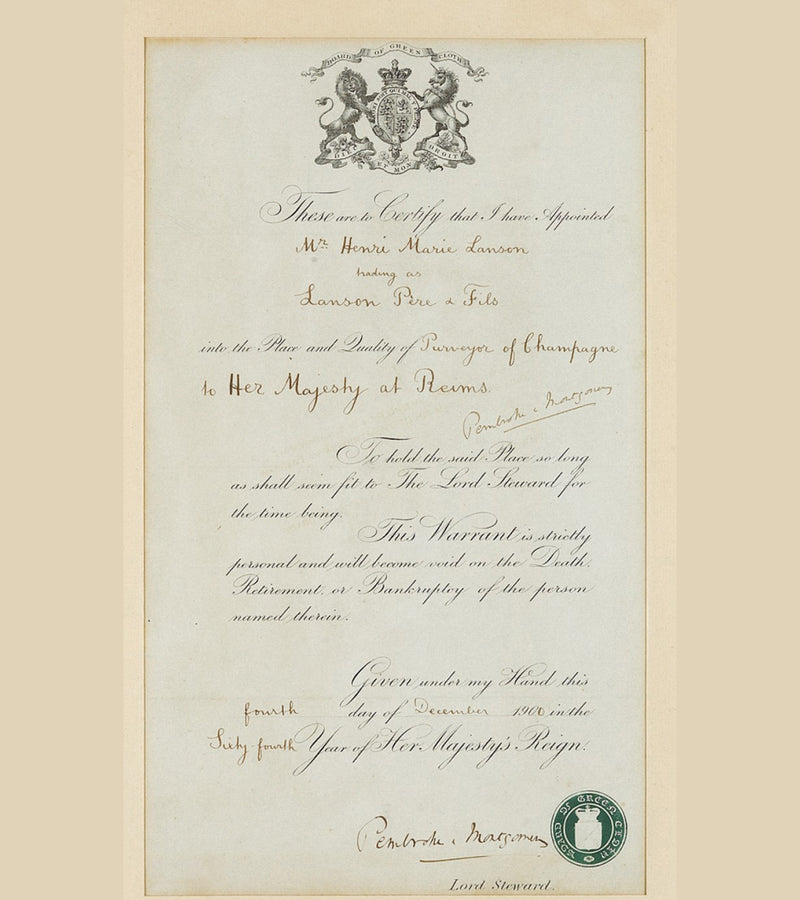 BOARD OF GREEN CLOTH
DIEU ET MON DROIT
These are to Certify that I have Appointed
Mr. Henri Marie Lanson
trading as
Lanson Père & Fils
into the Place and Quality of Purveyor of Champagne
to Her Majesty at Reims.
Pembroke & Montgomery
To hold the said Place so long
as shall seem fit to The Lord Steward for
the time being.
This Warrant is strictly
personal and will become void on the Death,
Retirement, or Bankruptcy of the person
named therein.
Given under my Hand this
fourth day of December 1900 in the
Sixty fourth Year of Her Majesty's Reign.
Pembroke & Montgomery
BOARD OF GREEN CLOTH
Lord Steward.